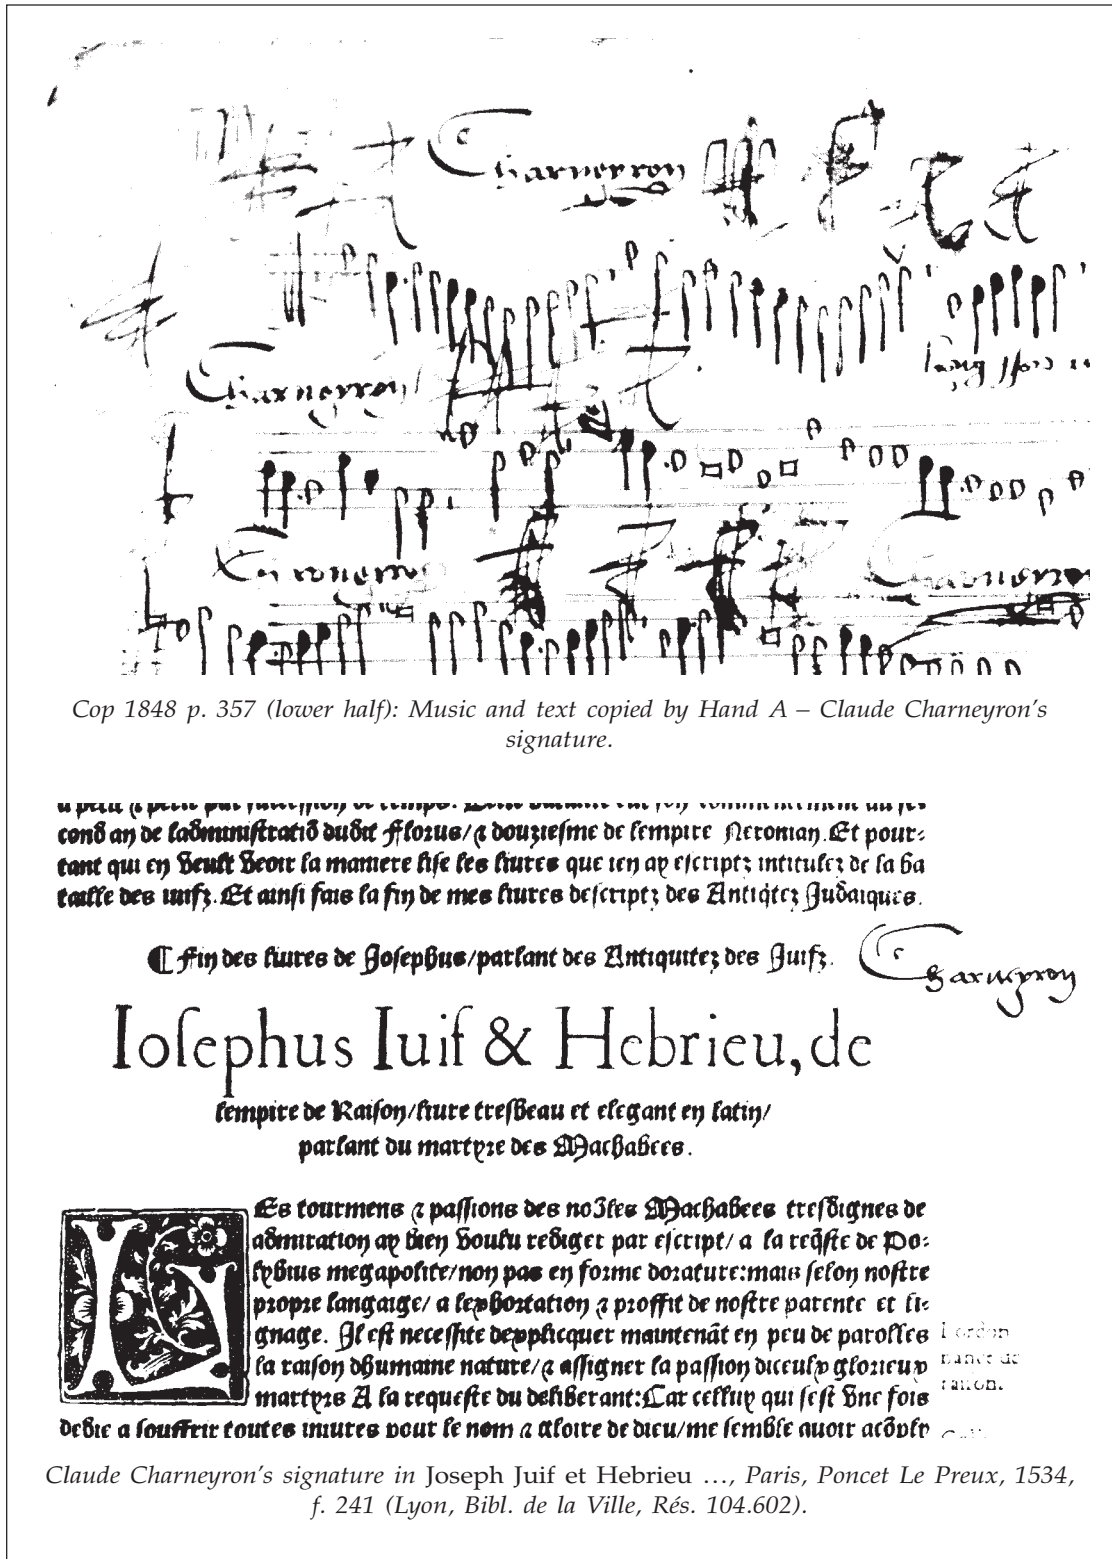 Charneyron
Charneyron
Charneyron
Cop 1848 p. 357 (lower half): Music and text copied by Hand A – Claude Charneyron’s
signature.
cond an de ladministratiõ dudit Florus/ ⁊ douziesme de lempire Neronian. Et pour-
tant qui en veult veoir la maniere lise les liures que ien ay escriptz intitulez de la ba
taille des iuifz. Et ainsi fais la fin de mes liures descriptz des Antiq̃tez Judaiques.
¶ Fin des liures de Josephus/parlant des Antiquitez des Juifz.
Charneyron
Iosephus Iuif & Hebrieu, de
lempire de Raison/liure tresbeau et elegant en latin/
parlant du martyre des Machabees.
LEs tourmens ⁊ passions des nobles Machabees tresdignes de
admiration ay bien voulu rediger par escript/ a la req̃ste de Po-
lybius megapolite/non pas en forme dorature:mais selon nostre
propre langaige/ a lexhortation ⁊ proffit de nostre parente et li-
gnage. Il est necessite dexplicquer maintenãt en peu de parolles
la raison dhumaine nature/⁊ assigner la passion diceulx glorieux
martyrs A la requeste du deliberant:Car celluy qui sest vne fois
dedie a souffrir toutes iniures pour le nom ⁊ gloire de dieu/me semble auoir acõply
Lordon
nance de
raison.
Claude Charneyron’s signature in Joseph Juif et Hebrieu …, Paris, Poncet Le Preux, 1534,
f. 241 (Lyon, Bibl. de la Ville, Rés. 104.602).